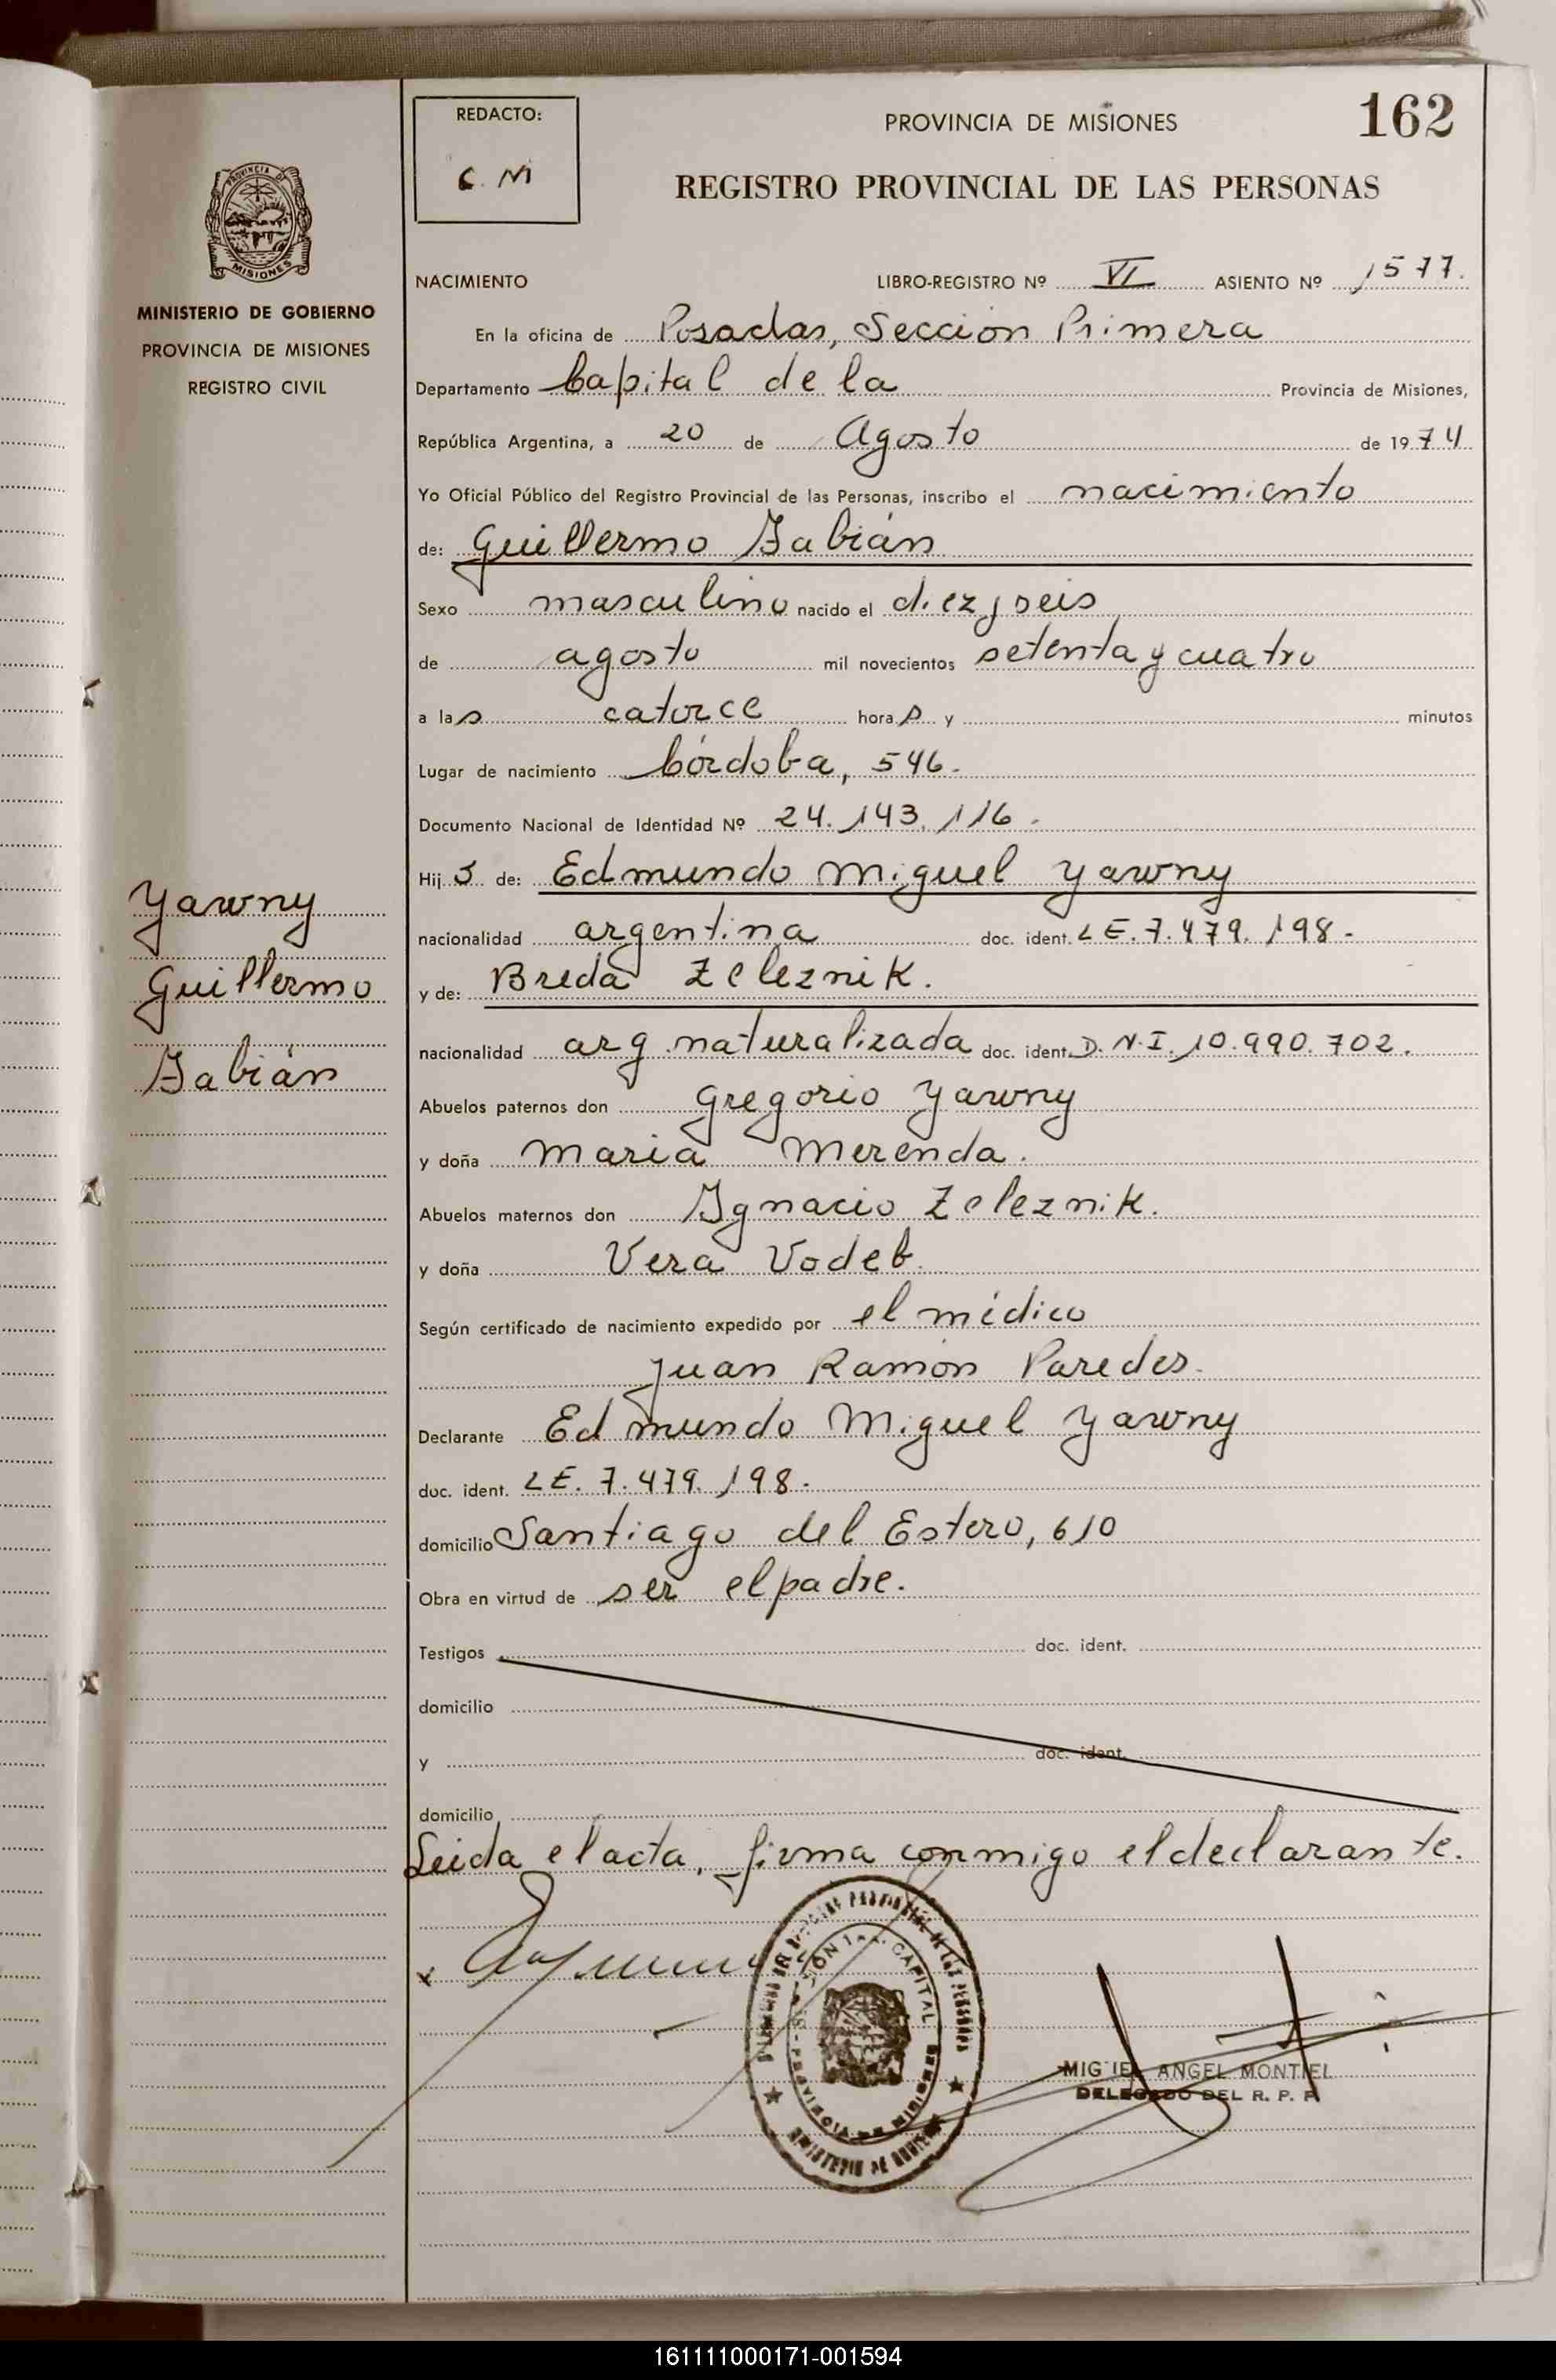 REDACTO:
C. M
PROVINCIA DE MISIONES
162
REGISTRO PROVINCIAL DE LAS PERSONAS
PROVINCIA DE
MISIONES
MINISTERIO DE GOBIERNO
PROVINCIA DE MISIONES
REGISTRO CIVIL
NACIMIENTO LIBRO-REGISTRO Nº VI ASIENTO Nº 1577.
En la oficina de Posadas, Sección Primera
Departamento Capital de la Provincia de Misiones,
República Argentina, a 20 de Agosto de 1974
Yo Oficial Público del Registro Provincial de las Personas, inscribo el nacimiento
de: Guillermo Fabián
Sexo masculino nacido el diez y seis
de agosto mil novecientos setenta y cuatro
a las catorce horas y minutos
Lugar de nacimiento Córdoba, 546.
Documento Nacional de Identidad Nº 24.143.116.
Hijo de: Edmundo Miguel Yawny
nacionalidad argentina doc. ident. L E. 7.479.198.
y de: Breda Zeleznik.
nacionalidad arg. naturalizada doc. ident. D. N. I. 10.990.702.
Abuelos paternos don Gregorio Yawny
y doña Maria Merenda.
Abuelos maternos don Ignacio Zeleznik.
y doña Vera Vodeb.
Según certificado de nacimiento expedido por el médico
Juan Ramón Paredes.
Declarante Edmundo Miguel Yawny
doc. ident. L E. 7.479.198.
domicilio Santiago del Estero, 610
Obra en virtud de ser el padre.
Testigos doc. ident.
domicilio
y doc. ident.
domicilio
Leida el acta, firma conmigo el declarante.
Yawny
Guillermo
Fabián
CAPITAL
MIGUEL ANGEL MONTIEL
DELEGADO DEL R. P. P.
161111000171-001594